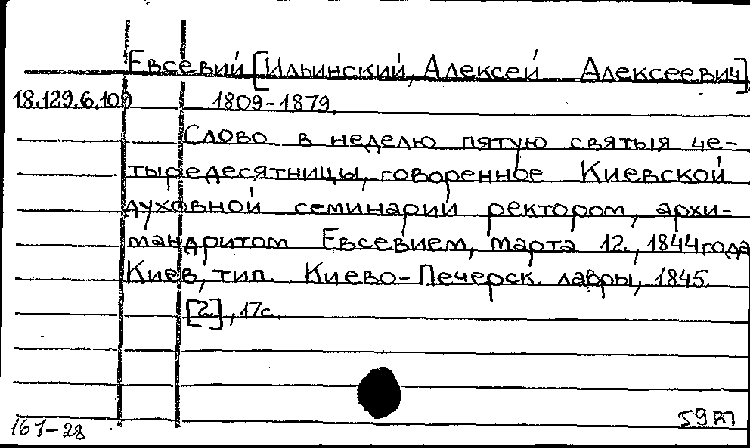 Евсевий [Ильинский, Алексей Алексеевич]
18.129.6.100 1809-1879.
Слово в неделю пятую святыя че-
тыредесятницы, говоренное Киевской
духовной семинарии ректором, архи-
мандритом Евсевием, марта 12., 1844 года
Киев, тип. Киево-Печерск. лавры, 1845.
[2], 17с.
161-28